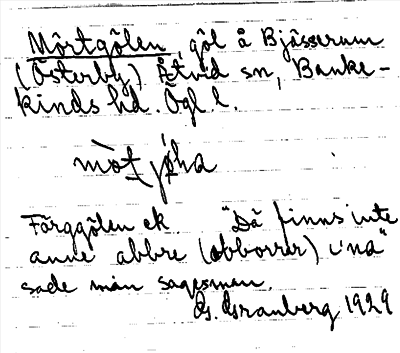 Mörtgölen, göl å Bjässerum
(Österby) Åtvid sn, Banke-
kinds hd. Ögl l.
mòt jǿ̀ha
Färggölen ek. "Dä finns inte
anne abbre (abborrar) i'na"
sade min sagesman.
G. Granberg 1929